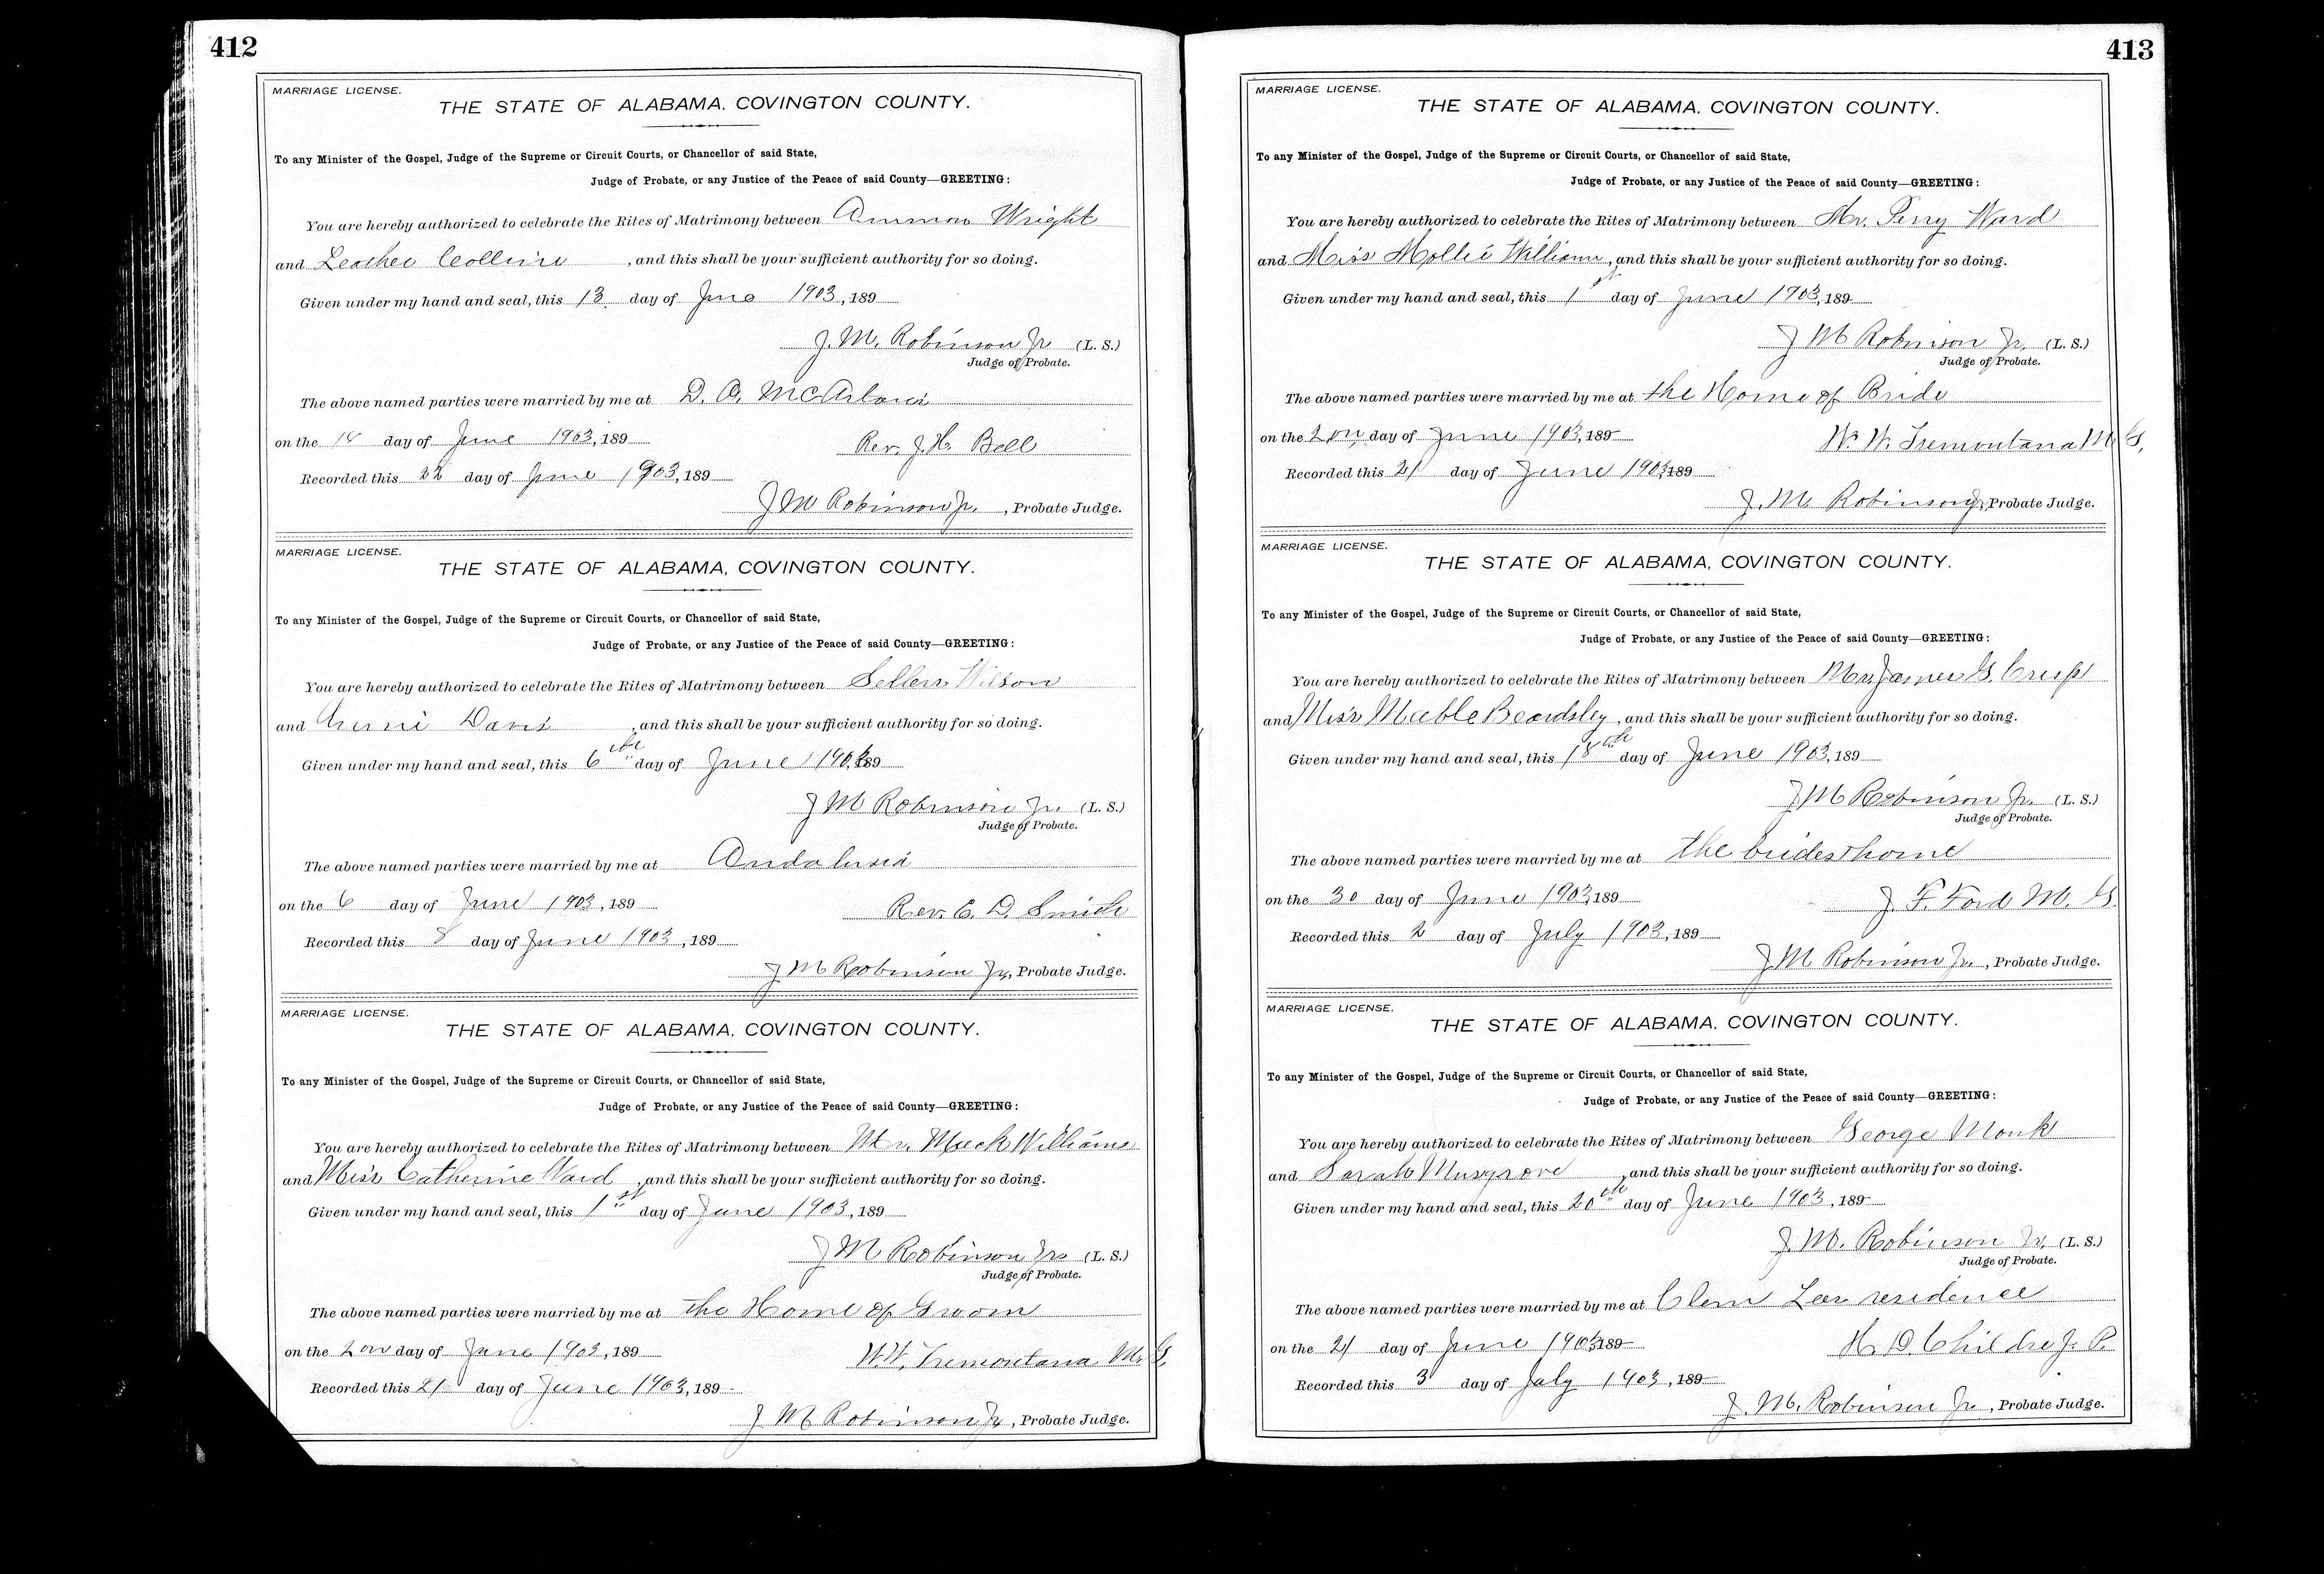 412
MARRIAGE LICENSE.
THE STATE OF ALABAMA, COVINGTON COUNTY.
To any Minister of the Gospel, Judge of the Supreme or Circuit Courts, or Chancellor of said State,
Judge of Probate, or any Justice of the Peace of said County—GREETING:
You are hereby authorized to celebrate the Rites of Matrimony between Ammon Wright
and Leather Collins, and this shall be your sufficient authority for so doing.
Given under my hand and seal, this 13 day of June 1903, 189
J. M. Robinson Jr (L. S.)
Judge of Probate.
The above named parties were married by me at D. A.
on the day of June 1903, 189
Rev. J. H. Bell
Recorded this 22 day of June 1903, 189
J M Robinson Jr. , Probate Judge.
MARRIAGE LICENSE.
THE STATE OF ALABAMA, COVINGTON COUNTY.
To any Minister of the Gospel, Judge of the Supreme or Circuit Courts, or Chancellor of said State,
Judge of Probate, or any Justice of the Peace of said County—GREETING:
You are hereby authorized to celebrate the Rites of Matrimony between Sellers Wilson
and Davis, and this shall be your sufficient authority for so doing.
Given under my hand and seal, this 6th day of June 1903, 189
J M Robinson Jr. (L. S.)
Judge of Probate.
The above named parties were married by me at Andalusia
on the 6 day of June 1903, 189
Rev. E. D. Smith
Recorded this 8 day of June 1903, 189
J M Robinson Jr, Probate Judge.
MARRIAGE LICENSE.
THE STATE OF ALABAMA, COVINGTON COUNTY.
To any Minister of the Gospel, Judge of the Supreme or Circuit Courts, or Chancellor of said State,
Judge of Probate, or any Justice of the Peace of said County—GREETING:
You are hereby authorized to celebrate the Rites of Matrimony between Mr. Mack Williams
and Miss Catherine Ward, and this shall be your sufficient authority for so doing.
Given under my hand and seal, this 1st day of June 1903, 189
J M Robinson Jr (L. S.)
Judge of Probate.
The above named parties were married by me at the Home of Groom
on the 2on day of June 1903, 189
W. W. Tremontana M. G.
Recorded this 21 day of June 1903, 189
J M Robinson Jr, Probate Judge.
413
MARRIAGE LICENSE.
THE STATE OF ALABAMA, COVINGTON COUNTY.
To any Minister of the Gospel, Judge of the Supreme or Circuit Courts, or Chancellor of said State,
Judge of Probate, or any Justice of the Peace of said County—GREETING:
You are hereby authorized to celebrate the Rites of Matrimony between Mr. Perry Ward
and Miss Mollie Williams, and this shall be your sufficient authority for so doing.
Given under my hand and seal, this 1st day of June 1903, 189
J M Robinson Jr. (L. S.)
Judge of Probate.
The above named parties were married by me at the Home of Bride
on the 2on day of June 1903, 189
W. W. Tremontana M G,
Recorded this 21 day of June 1903, 189
J. M. Robinson Jr, Probate Judge.
MARRIAGE LICENSE.
THE STATE OF ALABAMA, COVINGTON COUNTY.
To any Minister of the Gospel, Judge of the Supreme or Circuit Courts, or Chancellor of said State,
Judge of Probate, or any Justice of the Peace of said County—GREETING:
You are hereby authorized to celebrate the Rites of Matrimony between Mr James G. Crisp
and Miss Mable Beardsley, and this shall be your sufficient authority for so doing.
Given under my hand and seal, this 18th day of June 1903, 189
J M Robinson Jr. (L. S.)
Judge of Probate.
The above named parties were married by me at the brides home
on the 30 day of June 1903, 189
J. F. Ford M. G.
Recorded this 2 day of July 1903, 189
J. M Robinson Jr. , Probate Judge.
MARRIAGE LICENSE.
THE STATE OF ALABAMA, COVINGTON COUNTY.
To any Minister of the Gospel, Judge of the Supreme or Circuit Courts, or Chancellor of said State,
Judge of Probate, or any Justice of the Peace of said County—GREETING:
You are hereby authorized to celebrate the Rites of Matrimony between George Monk
and Sarah Musgrove, and this shall be your sufficient authority for so doing.
Given under my hand and seal, this 20th day of June 1903, 189
J. M. Robinson Jr. (L. S.)
Judge of Probate.
The above named parties were married by me at Clem Lees residence
on the 21 day of June 1903, 189
H. D. Childre J. P.
Recorded this 3 day of July 1903, 189
J. M. Robinson Jr , Probate Judge.